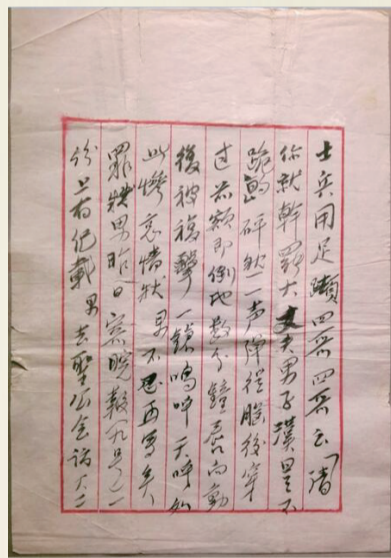 士兵用足四哥四哥云「請
你就幹罷大丈夫男子漢是不
跪的砰然一声彈從腦後穿
过前額即倒地数分鐘尚動
後被復擊一鎗嗚呼天呼如
此慘哀情狀男不忍再写矣
男昨日晚報九号二
份上有記載男去聖公会訪大二